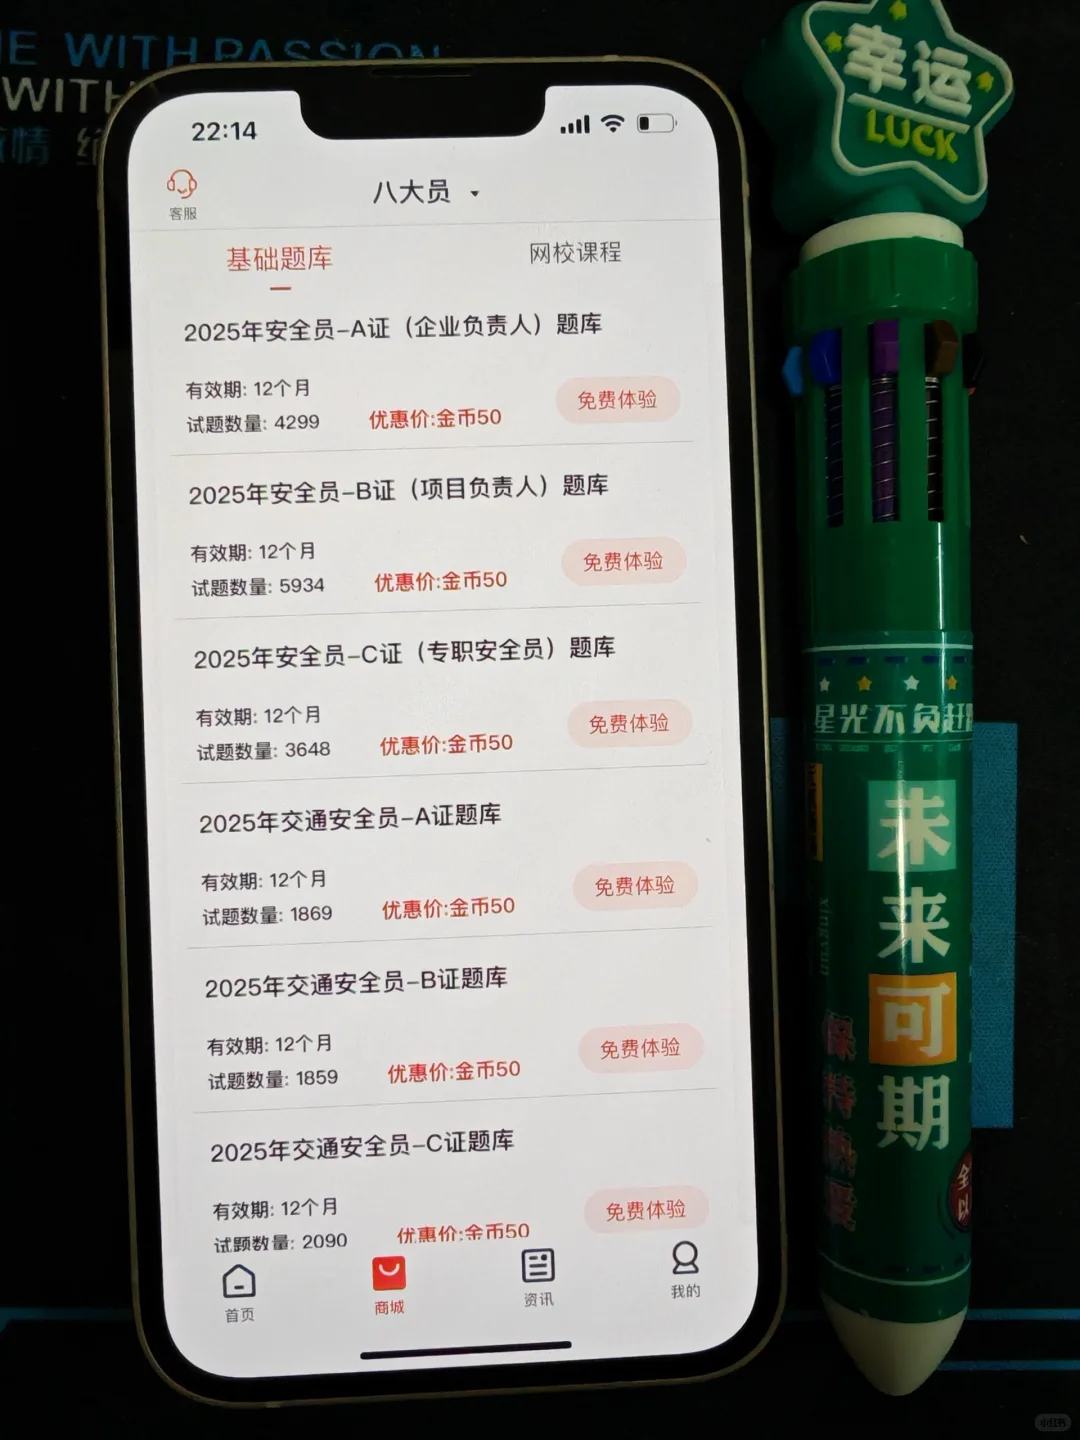 E WITH PASSION
WITH
情
22:14
客服
八大员
基础题库
网校课程
2025年安全员-A证（企业负责人）题库
有效期: 12个月
试题数量: 4299
优惠价:金币50
免费体验
2025年安全员-B证（项目负责人）题库
有效期: 12个月
试题数量: 5934
优惠价:金币50
免费体验
2025年安全员-C证（专职安全员）题库
有效期: 12个月
试题数量: 3648
优惠价:金币50
免费体验
2025年交通安全员-A证题库
有效期: 12个月
试题数量: 1869
优惠价:金币50
免费体验
2025年交通安全员-B证题库
有效期: 12个月
试题数量: 1859
优惠价:金币50
免费体验
2025年交通安全员-C证题库
有效期: 12个月
试题数量: 2090
优惠价:金币50
免费体验
首页
商城
资讯
我的
幸运
LUCK
星光不负赶
未来可期
保持热爱
全
以
小红书